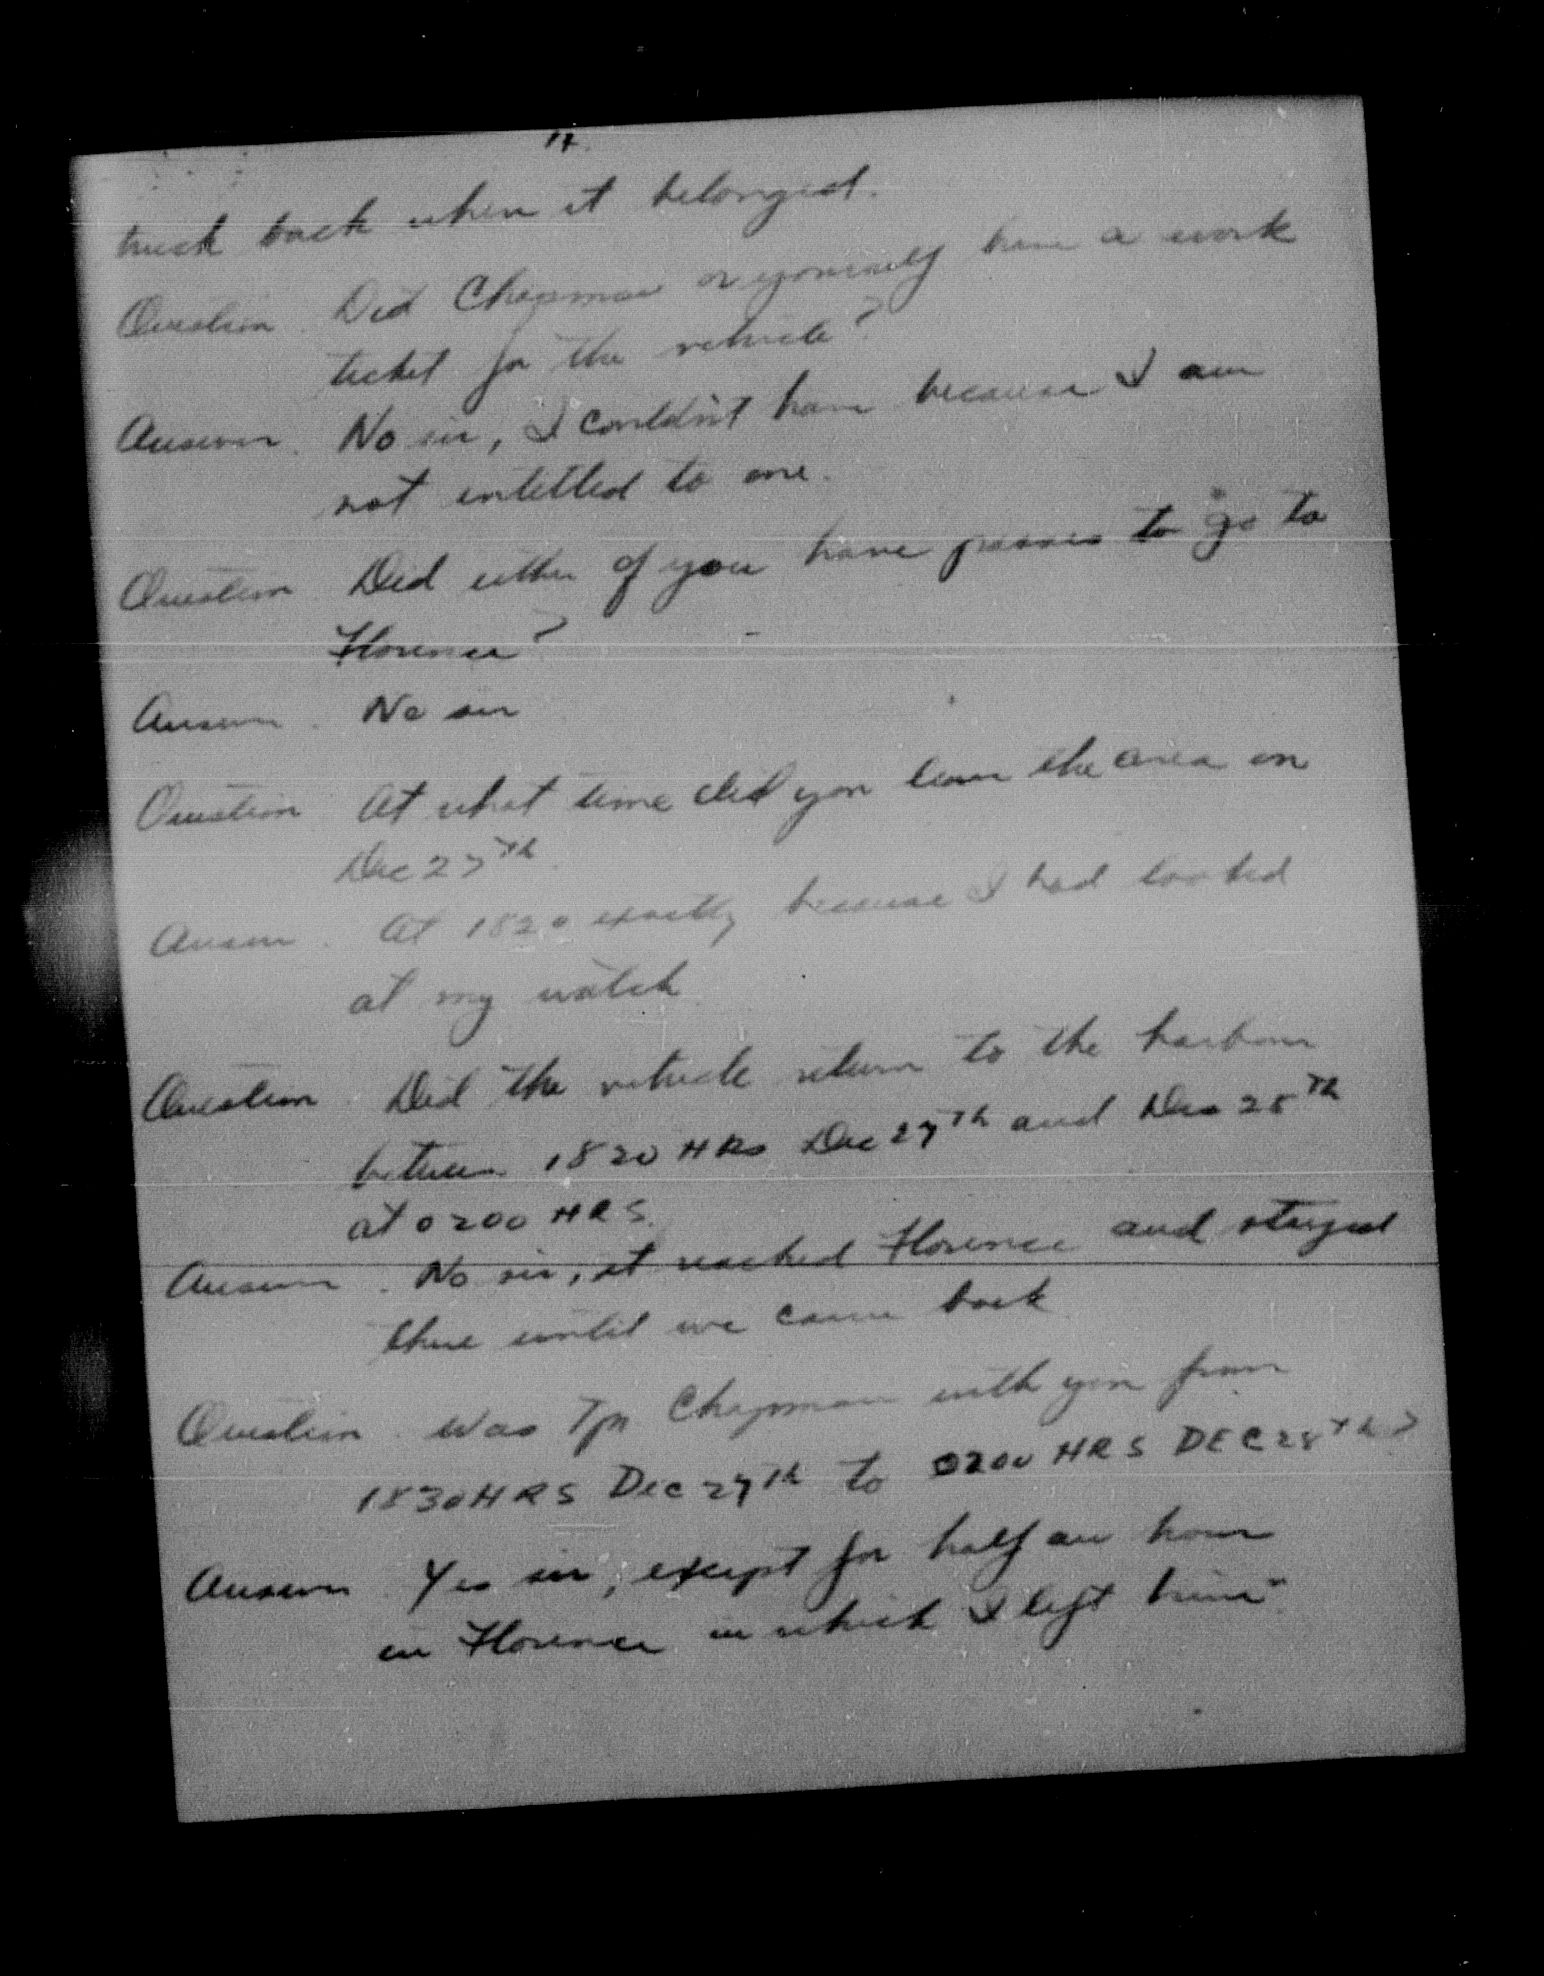 truck back when it belonged.
Question Did Chapman or yourself have a work
ticket for the vehicle?
Answer. No sir, I couldn't have because I am
not intitled to one.
Question Did either of you have passes to go to
Florence?
Answer. No sir
Question At what time did you leave the area on
Dec 27th.
Answer. At 1820 exactly because I had looked
at my watch.
Question. Did the vehicle return to the harbour
between 1820 HRS Dec 27th and Dec 28th
at 0200 HRS.
Answer. No sir, it reached Florence and stayed
there until we came back.
Question. Was Tpr Chapman with you from
1830 HRS Dec 27th to 0200 HRS DEC 28th?
Answer. Yes sir, except for half an hour
in Florence in which I left him.